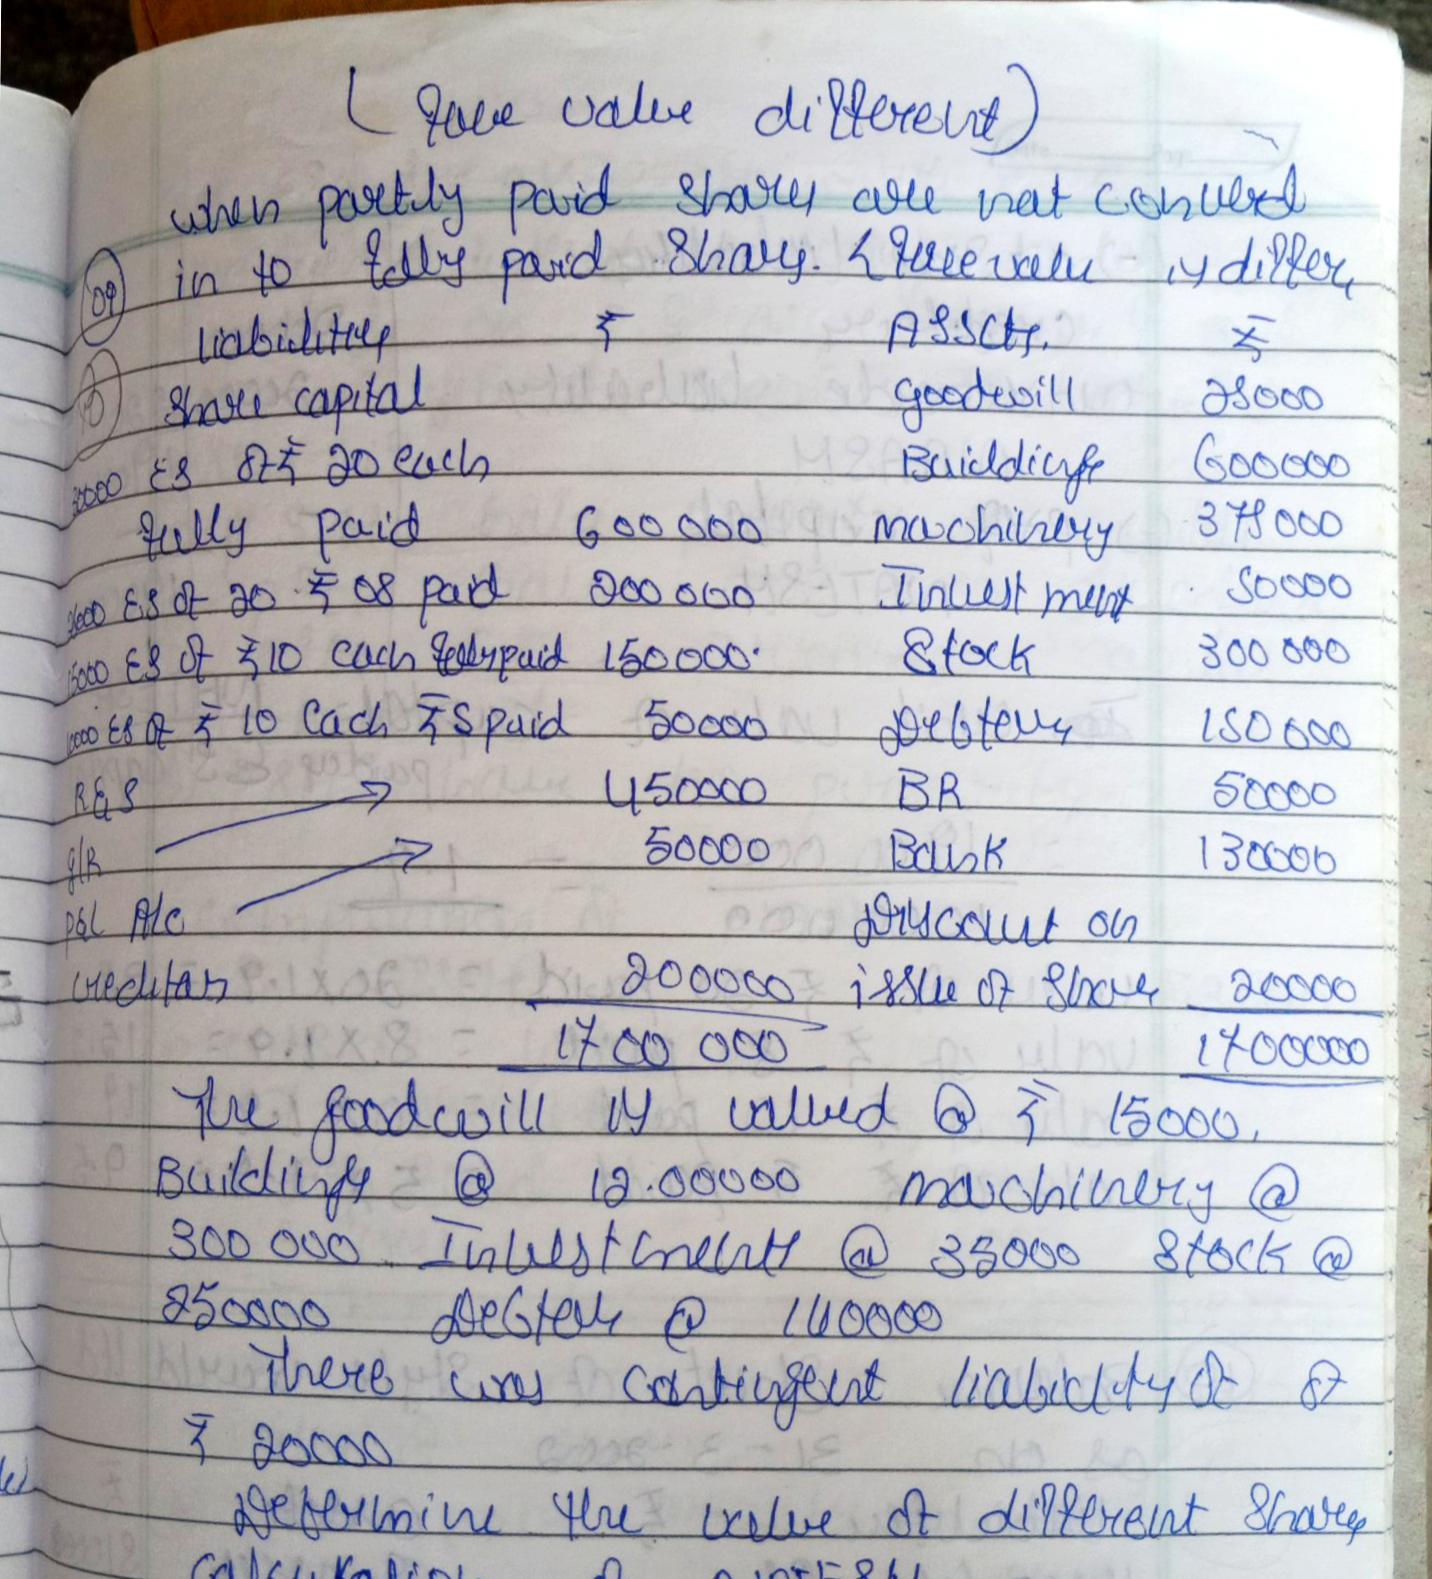 ( Face value different)
when partly paid shares are not converd
09 in to fully paid shares. & face value is differ,
liabilities ₹ Assets. ₹
Share capital Goodwill 25000
30000 ES of ₹ 20 each Buildings 600000
fully paid 600000 machinery 375000
ES of 20 ₹ 08 paid 200000 Investment 50000
15000 ES of ₹10 each fully paid 150000 Stock 300000
10000 ES of ₹ 10 each ₹5 paid 50000 Debtors 150000
R&S 450000 BR 50000
G/R 50000 Bank 130000
P&L A/c Discount on
creditors 200000 issue of shares 20000
1700000 1700000
The goodwill is valued @ ₹ 15000.
Buildings @ 12.00000 machinery @
300000 Investments @ 35000 Stock @
250000 Debtors @ 140000
There was contingent liability of of
₹ 20000
Determine the value of different shares